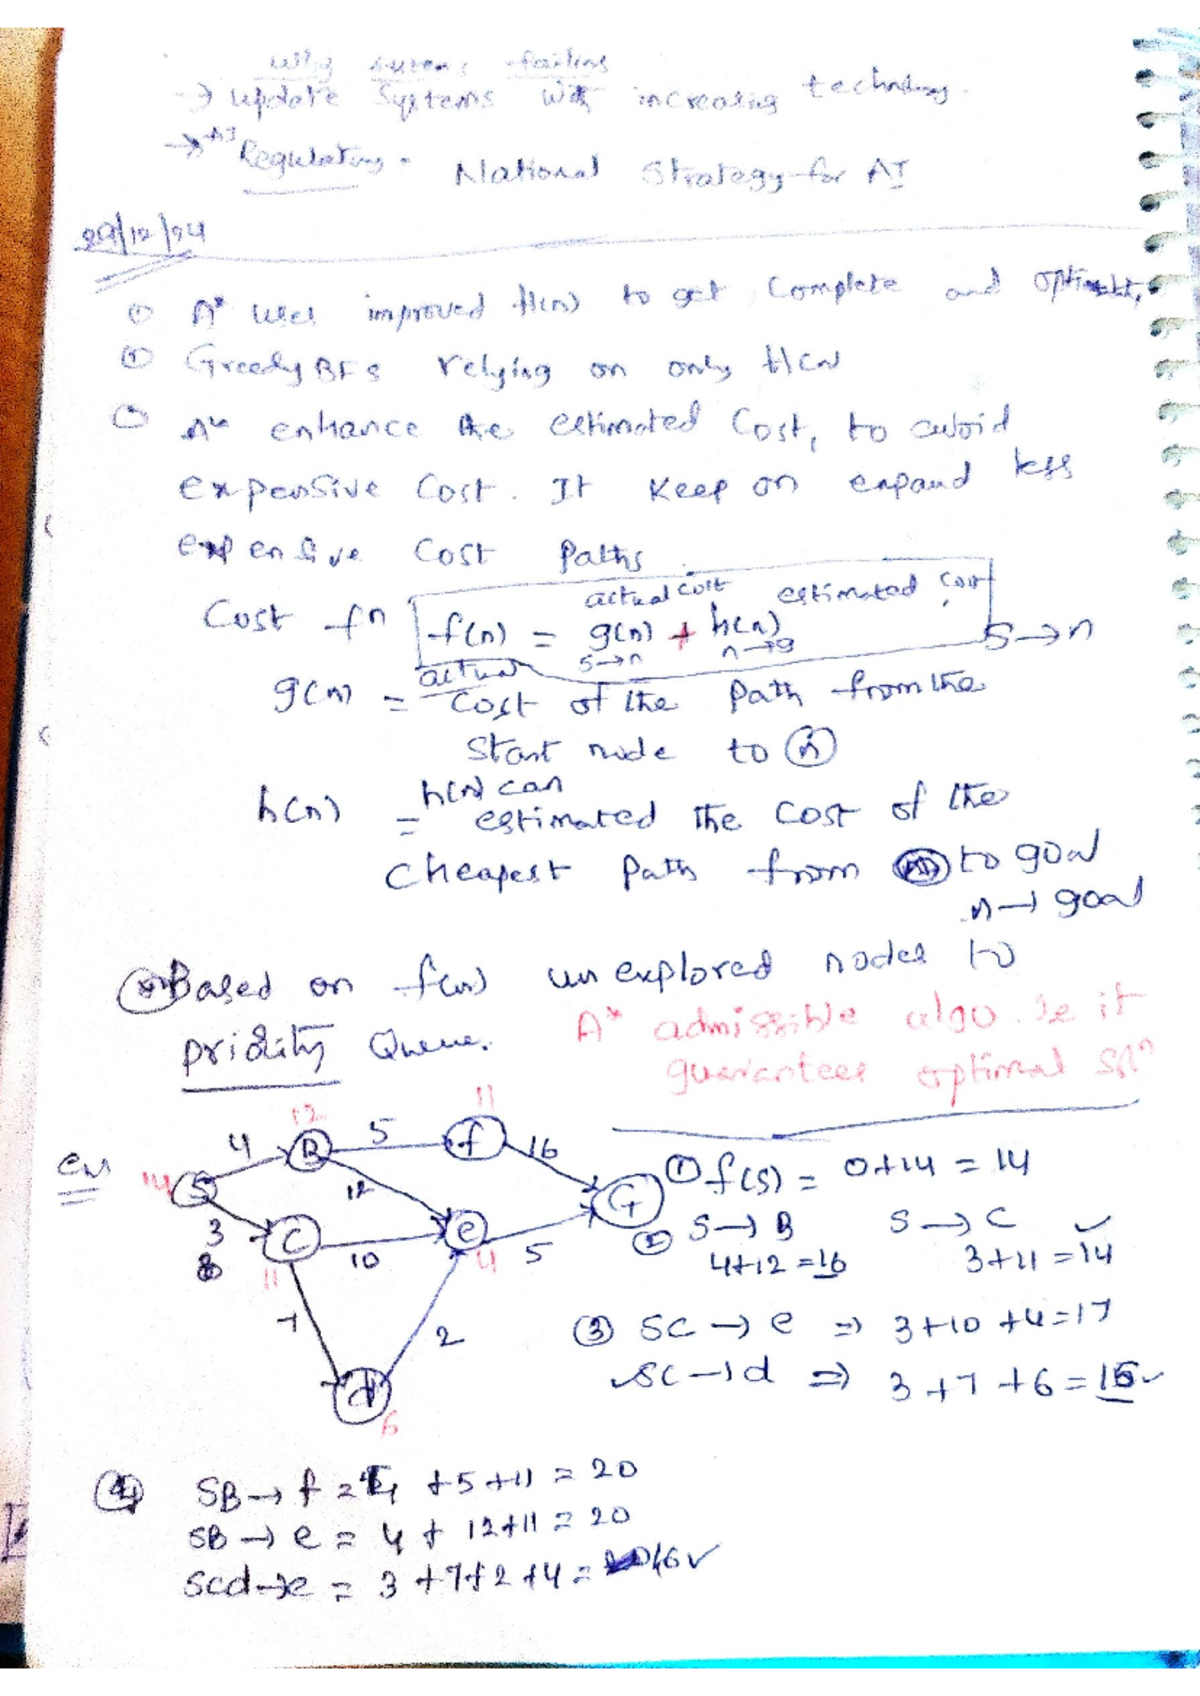 why systems failing
→ update systems with increasing technology.
→ AI Regulating - National Strategy for AI
29/12/24
① A* uses improved H(n) to get complete and
① Greedy BFS relying on only H(n)
A* enhance the estimated cost, to avoid
expensive cost. It keep on expand less
expensive cost paths.
actual cost estimated cost
Cost fn f(n) = g(n) + h(n)
s→n n→g s→n
g(n) = actual cost of the path from the
start node to n
h(n) = h(n) can estimated the cost of the
cheapest path from to goal
n→goal
Based on f(n) unexplored nodes to
priority Queue. A* admissible algo. ie it
guarantees optimal
ex
14 S 4 12 B 5 11 f 16 G
3 8 11 C 12 10 e 4 5
7 d 6 2
① f(s) = 0+14 = 14
② S→B S→C ✓
4+12=16 3+11=14
③ SC→e ⇒ 3+10+4=17
✓SC→d ⇒ 3+7+6=16✓
④ SB→f = 4+5+11=20
SB→e = 4+12+11=20
scd→e = 3+7+2+4=16✓